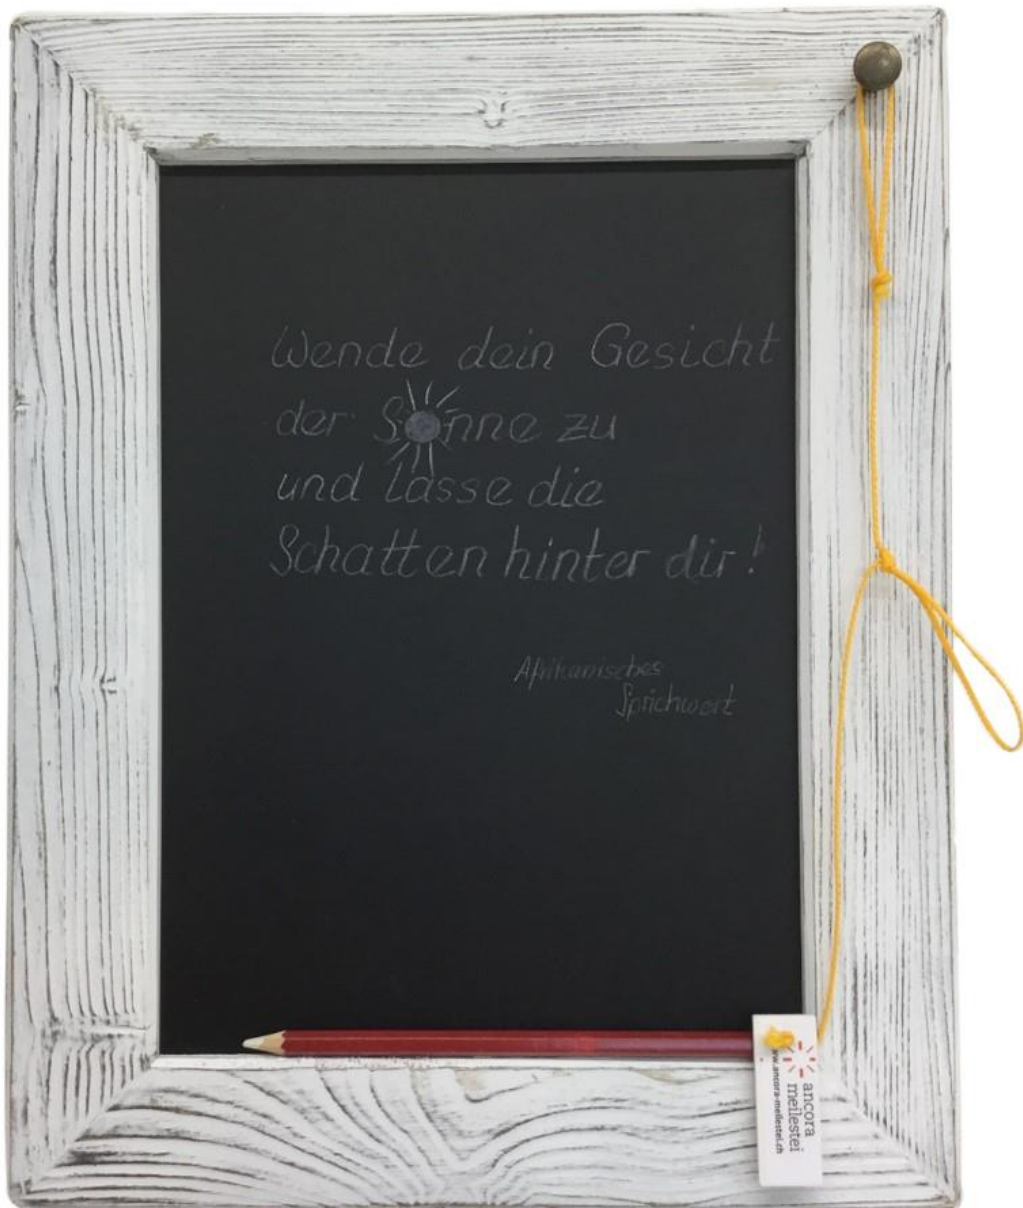 Wende dein Gesicht
der Sonne zu
und lasse die
Schatten hinter dir!
Afrikanisches
Sprichwort
ancora
meilestei
www.ancora-meilestei.ch